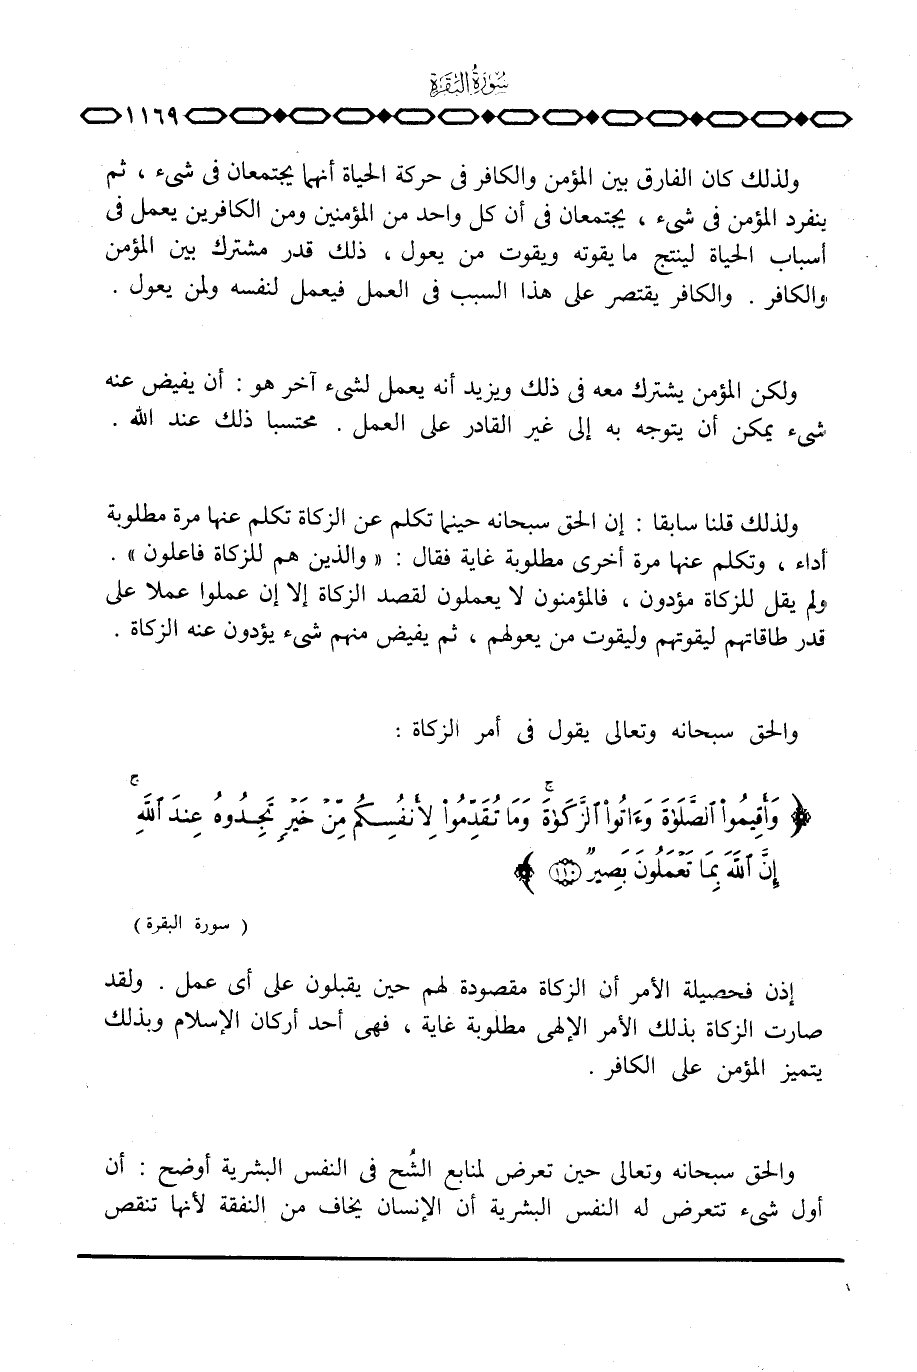 سورة البقرة
١١٦٩
ولذلك كان الفارق بين المؤمن والكافر فى حركة الحياة أنهما يجتمعان فى شىء ، ثم
ينفرد المؤمن فى شىء ، يجتمعان فى أن كل واحد من المؤمنين ومن الكافرين يعمل فى
أسباب الحياة لينتج ما يقوته ويقوت من يعول ، ذلك قدر مشترك بين المؤمن
والكافر . والكافر يقتصر على هذا السبب فى العمل فيعمل لنفسه ولمن يعول .
ولكن المؤمن يشترك معه فى ذلك ويزيد أنه يعمل لشىء آخر هو : أن يفيض عنه
شىء يمكن أن يتوجه به إلى غير القادر على العمل . محتسبا ذلك عند الله .
ولذلك قلنا سابقا : إن الحق سبحانه حينما تكلم عن الزكاة تكلم عنها مرة مطلوبة
أداء ، وتكلم عنها مرة أخرى مطلوبة غاية فقال : « والذين هم للزكاة فاعلون » .
ولم يقل للزكاة مؤدون ، فالمؤمنون لا يعملون لقصد الزكاة إلا إن عملوا عملا على
قدر طاقاتهم ليقوتهم وليقوت من يعولهم ، ثم يفيض منهم شىء يؤدون عنه الزكاة .
والحق سبحانه وتعالى يقول فى أمر الزكاة :
﴿ وَأَقِيمُوا۟ ٱلصَّلَوٰةَ وَءَاتُوا۟ ٱلزَّكَوٰةَ ۚ وَمَا تُقَدِّمُوا۟ لِأَنفُسِكُم مِّنْ خَيْرٍ تَجِدُوهُ عِندَ ٱللَّهِ ۗ
إِنَّ ٱللَّهَ بِمَا تَعْمَلُونَ بَصِيرٌ ١١٠ ﴾
( سورة البقرة )
إذن فحصيلة الأمر أن الزكاة مقصودة لهم حين يقبلون على أى عمل . ولقد
صارت الزكاة بذلك الأمر الإلهى مطلوبة غاية ، فهى أحد أركان الإسلام وبذلك
يتميز المؤمن على الكافر .
والحق سبحانه وتعالى حين تعرض لمنابع الشُح فى النفس البشرية أوضح : أن
أول شىء تتعرض له النفس البشرية أن الإنسان يخاف من النفقة لأنها تنقص